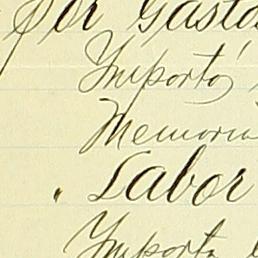 por Gasto
Importó
Memoria
" Labor
Importa